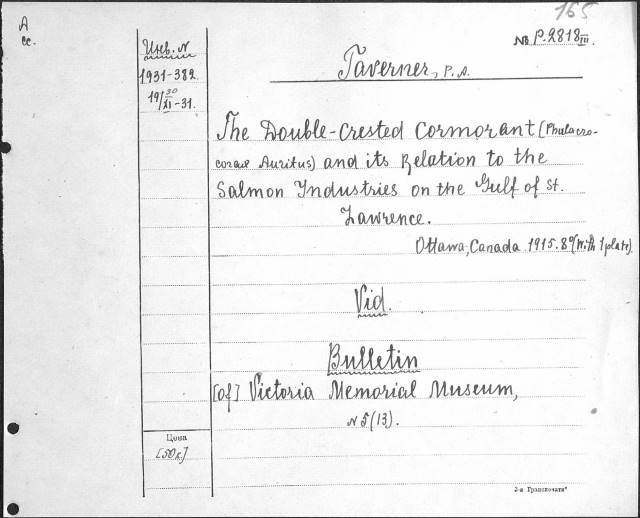 165
А
ес.
№ P.2818 III.
Инв. N
1931-382
19/30 XI-31.
Taverner, P. A.
The Double-Crested Cormorant (Phalacro-
corax Auritus) and its Relation to the
Salmon Industries on the Gulf of St.
Lawrence.
Ottawa, Canada 1915. 8° (With 1 plate)
Vid.
Bulletin
[of] Victoria Memorial Museum,
N 5 (13).
Цена
[50к.]
2-я Гранпечать"